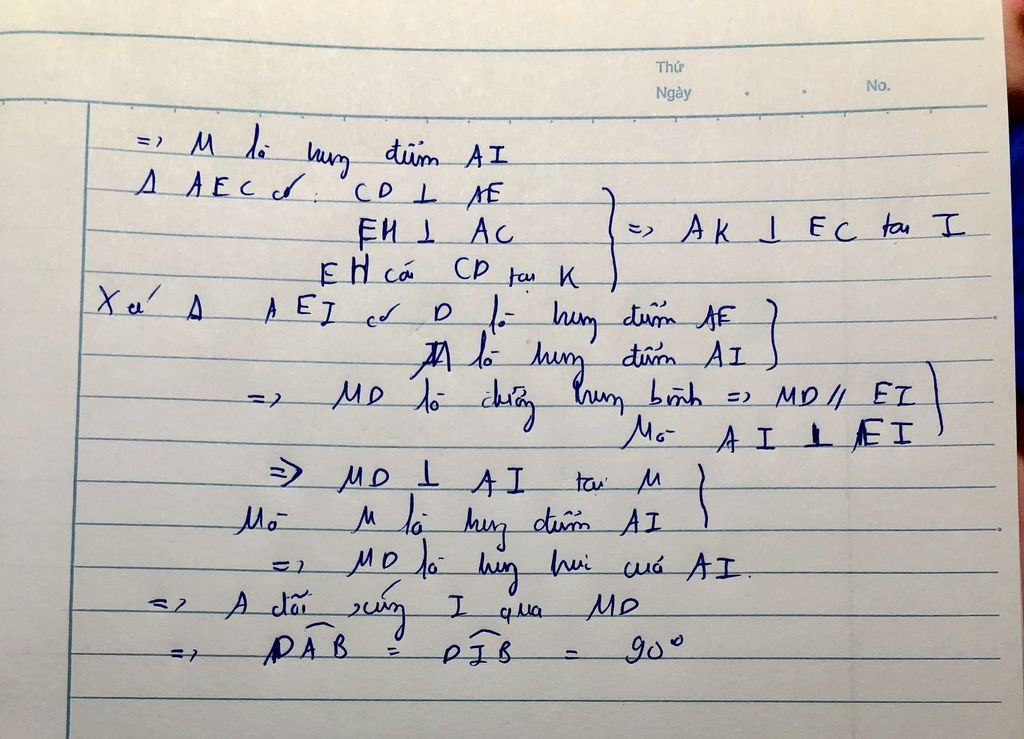 Thứ
Ngày . . No.
=> M là trung điểm AI
Δ AEC có: CD ⊥ AE
EH ⊥ AC
=> AK ⊥ EC tại I
EH cắt CD tại K
Xét Δ AEI có D là trung điểm AE
M là trung điểm AI
=> MD là đường trung bình => MD // EI
Mà AI ⊥ EI
=> MD ⊥ AI tại M
Mà M là trung điểm AI
=> MD là trung trực của AI.
=> A đối xứng I qua MD
=> DAB = DIB = 90°